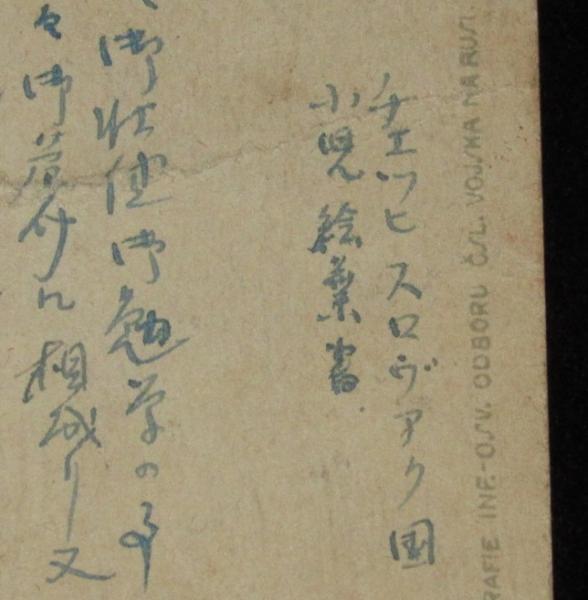 RAFIE INF.-OSV. ODBORU ČSL. VOJSKA NA RUSI.
チエツヒスロヴアク国
小児絵葉書
御壮健御勉学の事
御着付に相成り又